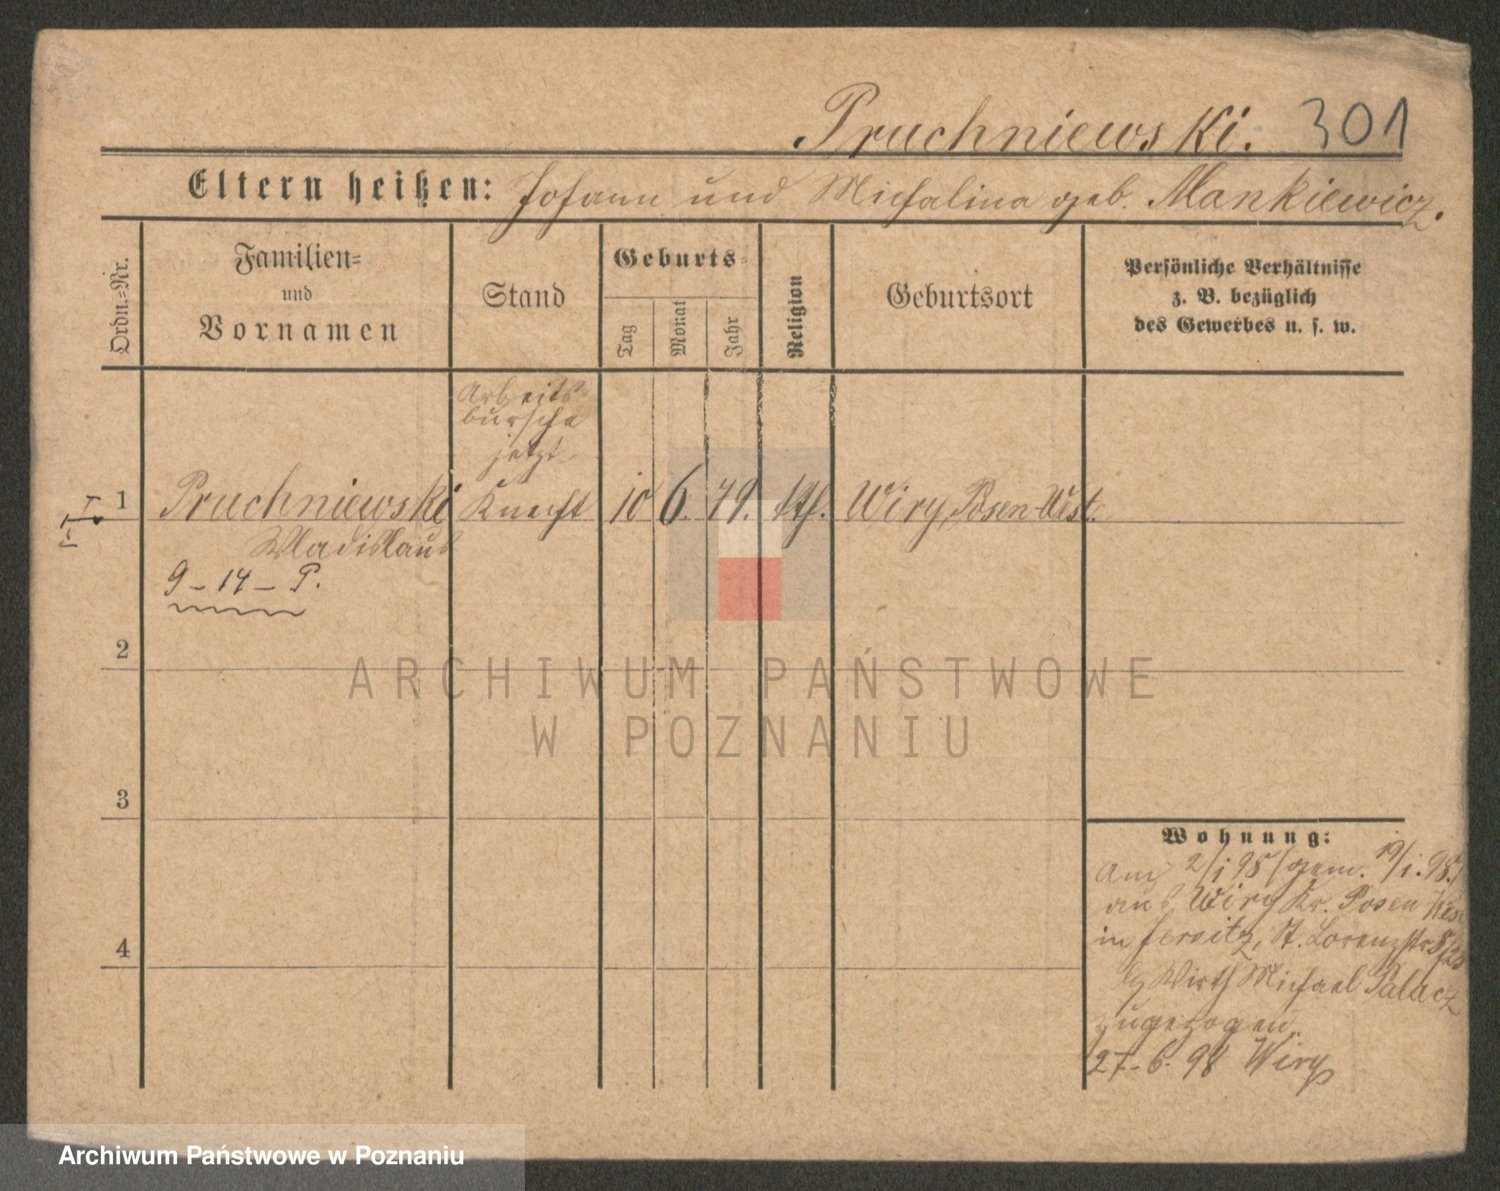 Pruchniewski. 301
Eltern heißen: Johann und Michalina geb. Mankiewicz.
Ordn.=Nr.
Familien=
und
Vornamen
Stand
Geburts=
Tag
Monat
Jahr
Religion
Geburtsort
Persönliche Verhältnisse
z. B. bezüglich
des Gewerbes u. s. w.
Arbeits-
bursche
jetzt
1 Pruchniewski Knecht 10 6. 79. kth. Wiry, Posen-West.
Wladislaus
9 - 14 - P.
2
ARCHIWUM PAŃSTWOWE
W POZNANIU
3
4
Wohnung:
Am 2/1 95 (gem. 19/1. 95.)
aus Wiry Kr. Posen West
in Jersitz, St. Lorenzstr.
Wirth Michael Palacz
zugezogen.
27. 6. 98 Wiry
Archiwum Państwowe w Poznaniu